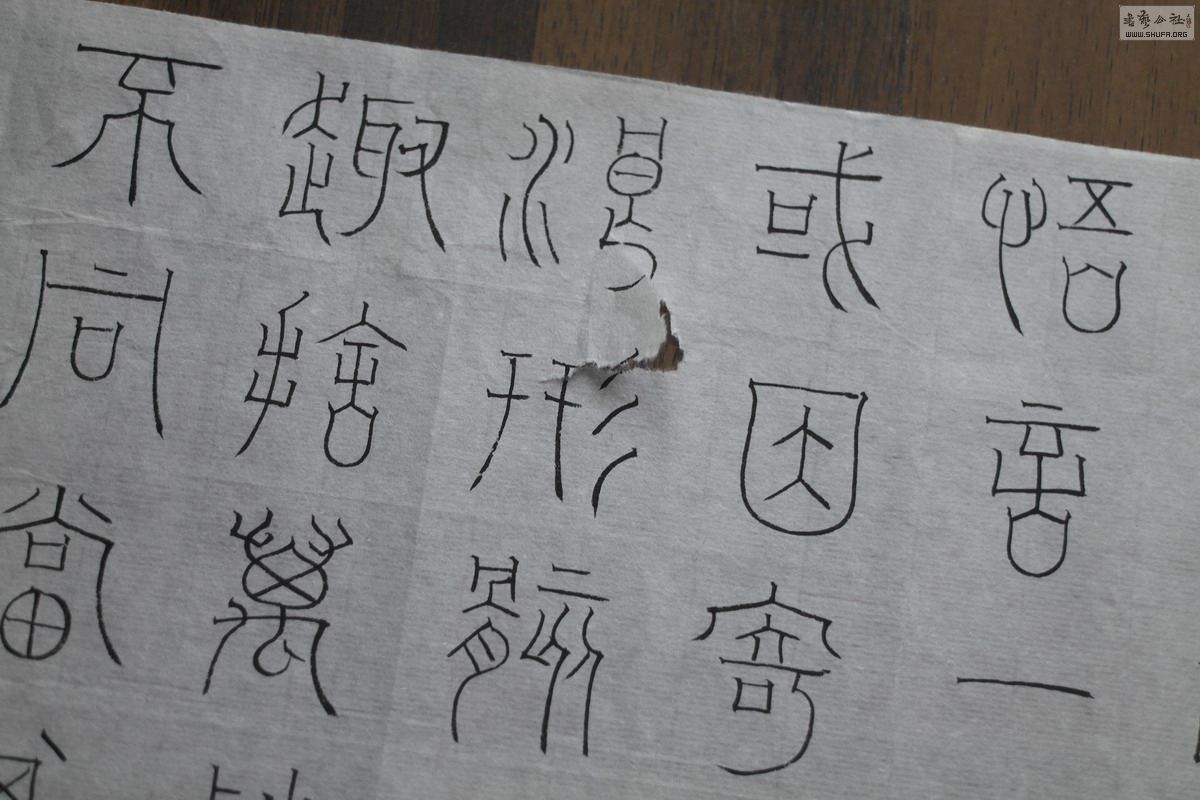 悟言一
或因寄
浪形骸
趣捨萬
不同當
書藝公社
WWW.SHUFA.ORG